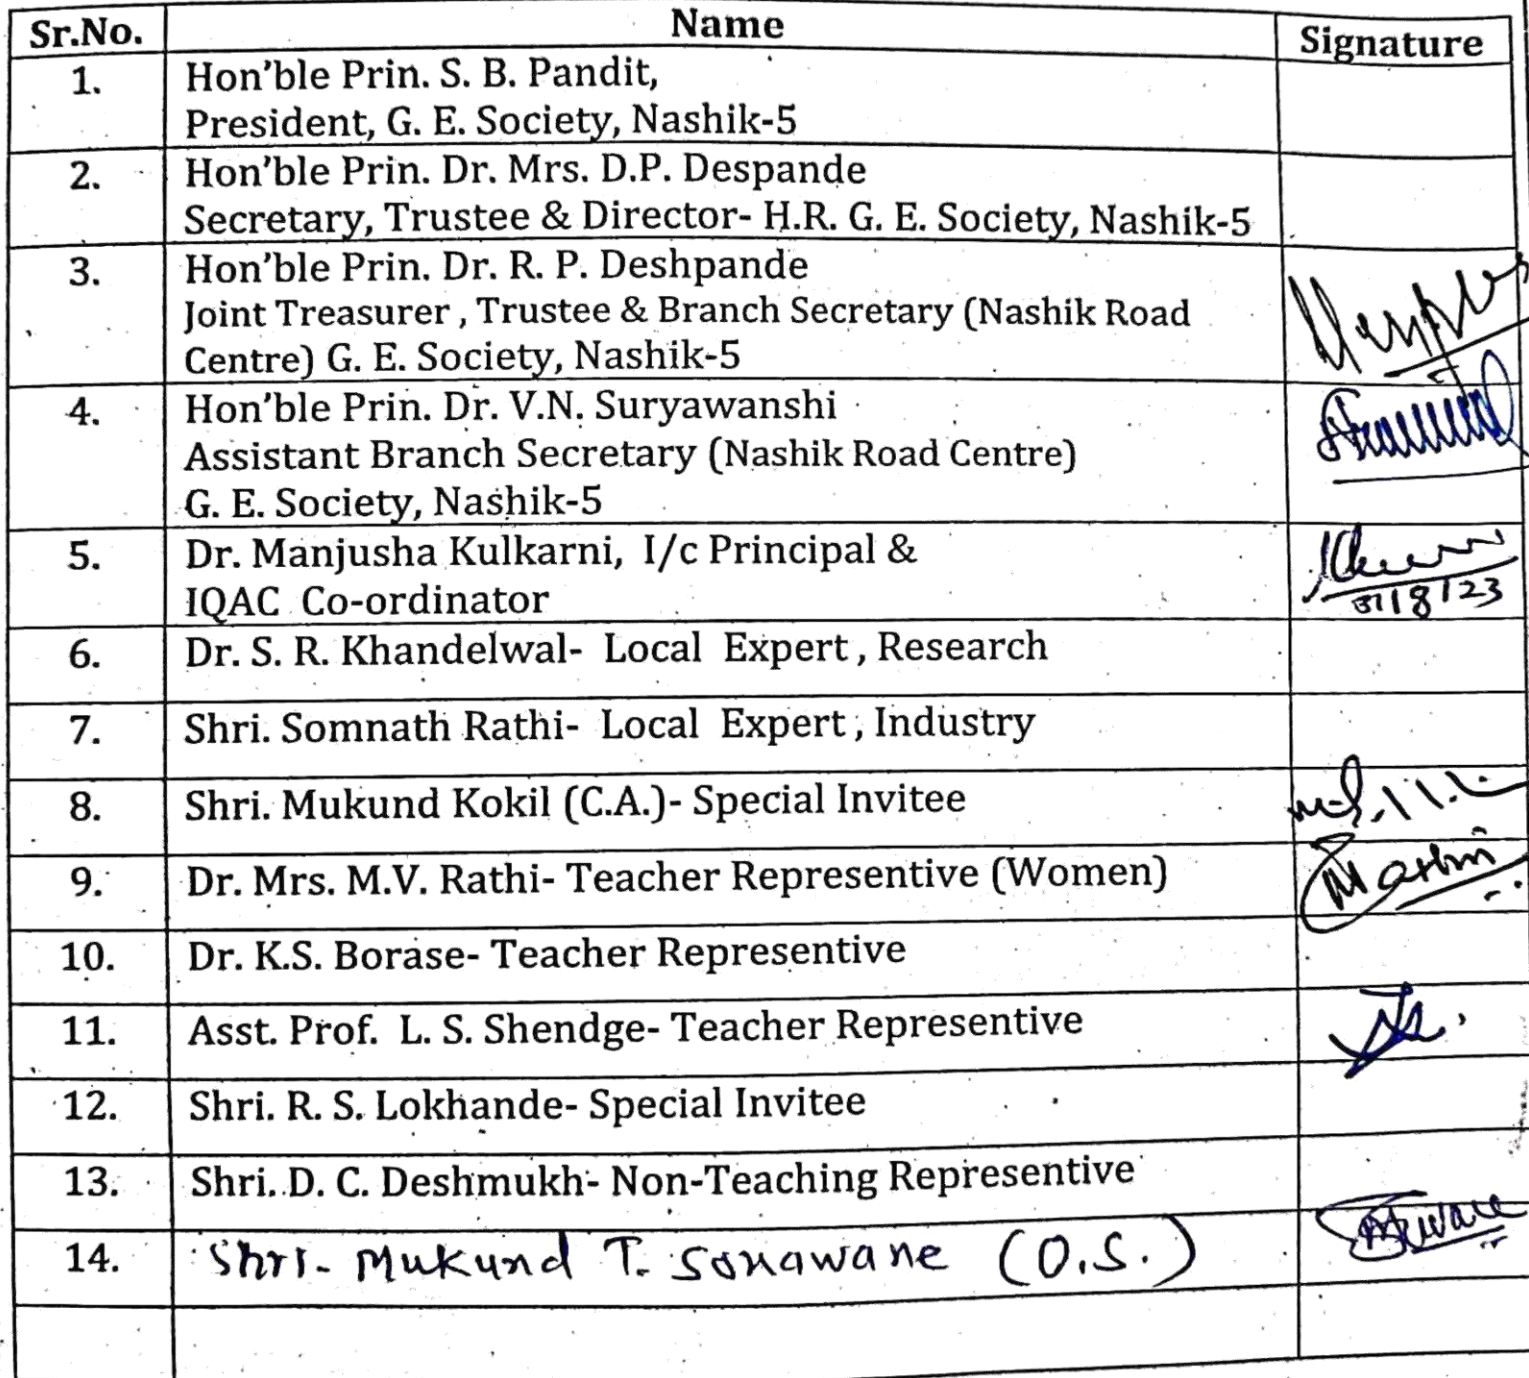 Sr.No. Name Signature
1. Hon'ble Prin. S. B. Pandit,
President, G. E. Society, Nashik-5
2. Hon'ble Prin. Dr. Mrs. D.P. Despande
Secretary, Trustee & Director- H.R. G. E. Society, Nashik-5
3. Hon'ble Prin. Dr. R. P. Deshpande
Joint Treasurer , Trustee & Branch Secretary (Nashik Road
Centre) G. E. Society, Nashik-5
4. Hon'ble Prin. Dr. V.N. Suryawanshi
Assistant Branch Secretary (Nashik Road Centre)
G. E. Society, Nashik-5
5. Dr. Manjusha Kulkarni, I/c Principal &
IQAC Co-ordinator
6. Dr. S. R. Khandelwal- Local Expert , Research
7. Shri. Somnath Rathi- Local Expert , Industry
8. Shri. Mukund Kokil (C.A.)- Special Invitee
9. Dr. Mrs. M.V. Rathi- Teacher Representive (Women)
10. Dr. K.S. Borase- Teacher Representive
11. Asst. Prof. L. S. Shendge- Teacher Representive
12. Shri. R. S. Lokhande- Special Invitee
13. Shri. D. C. Deshmukh- Non-Teaching Representive
14. Shri. Mukund T. Sonawane (O.S.)